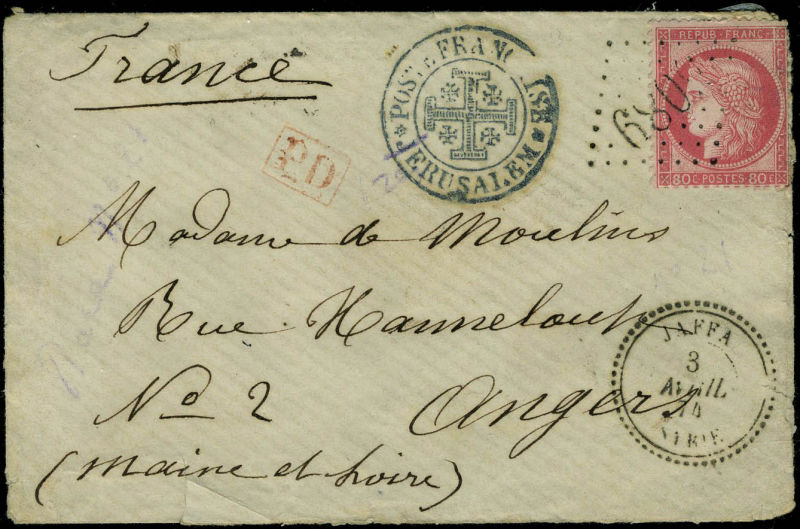 France
POSTE FRANÇAISE
JERUSALEM
REPUB. FRANC.
6080
80C POSTES 80C
PD
Madame de Moulins
Rue Hanneloup
No 2 Angers
(Maine et Loire)
JAFFA
3
AVRIL
74
SYRIE